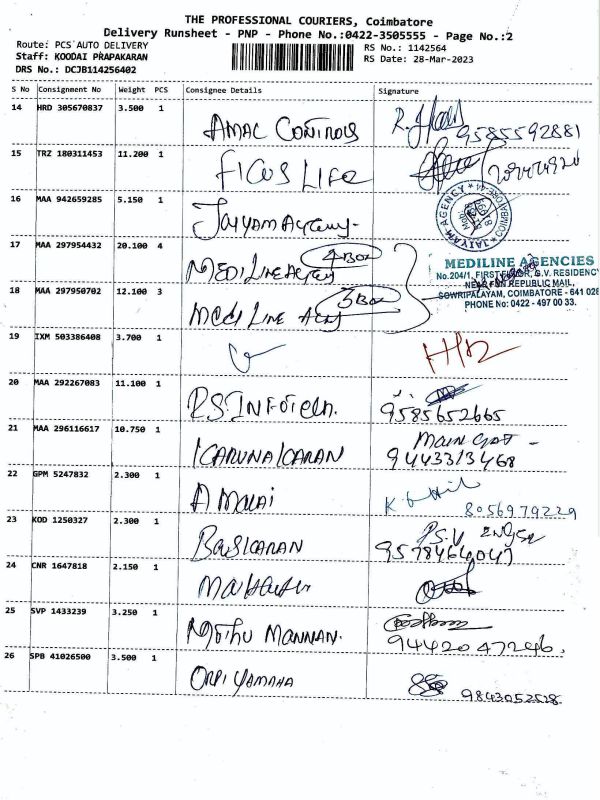 THE PROFESSIONAL COURIERS, Coimbatore
Delivery Runsheet - PNP - Phone No.:0422-3505555 - Page No.:2
Route: PCS AUTO DELIVERY
RS No.: 1142564
Staff: KOODAI PRAPAKARAN
RS Date: 28-Mar-2023
DRS No.: DCJB114256402
S No Consignment No Weight PCS Consignee Details Signature
14 HRD 305670837 3.500 1
AMAC CONTROLS 9585592881
15 TRZ 180311453 11.200 1
FICUS LIFE
16 MAA 942659285 5.150 1
JAIYAM AGENCY
JAIYAM AGENCY
COIMBATORE
17 MAA 297954432 20.100 4
4 BOX
MEDI LINE
MEDILINE AGENCIES
No.204/1, FIRST FLOOR, G.V. RESIDENCY
NEAR FUN REPUBLIC MAIL,
SOWRIPALAYAM, COIMBATORE - 641 028
PHONE No: 0422 - 497 00 33.
18 MAA 297950702 12.100 3
3 BOX
MEDI LINE
19 IXM 503386408 3.700 1
20 MAA 292267083 11.100 1
RS INFOTECH. 9585652665
21 MAA 296116617 10.750 1
KARUNAKARAN 9443313468
22 GPM 5247832 2.300 1
A MALAI 8056979229
23 KOD 1250327 2.300 1
BASKARAN
24 CNR 1647818 2.150 1
25 SVP 1433239 3.250 1
MUTHU MANNAN. 9442047246.
26 SPB 41026500 3.500 1
ORPI YAMAHA 9843052528